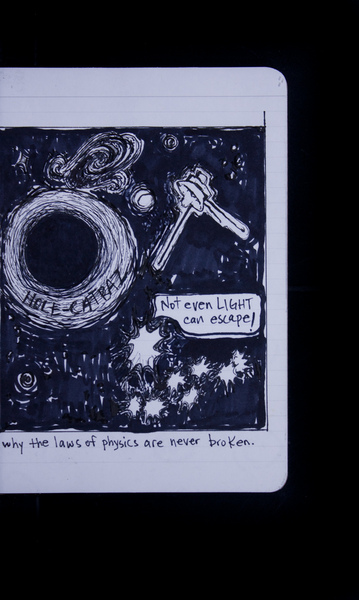 HOLE-CATRAZ
Not even LIGHT
can escape!
why the laws of physics are never broken.